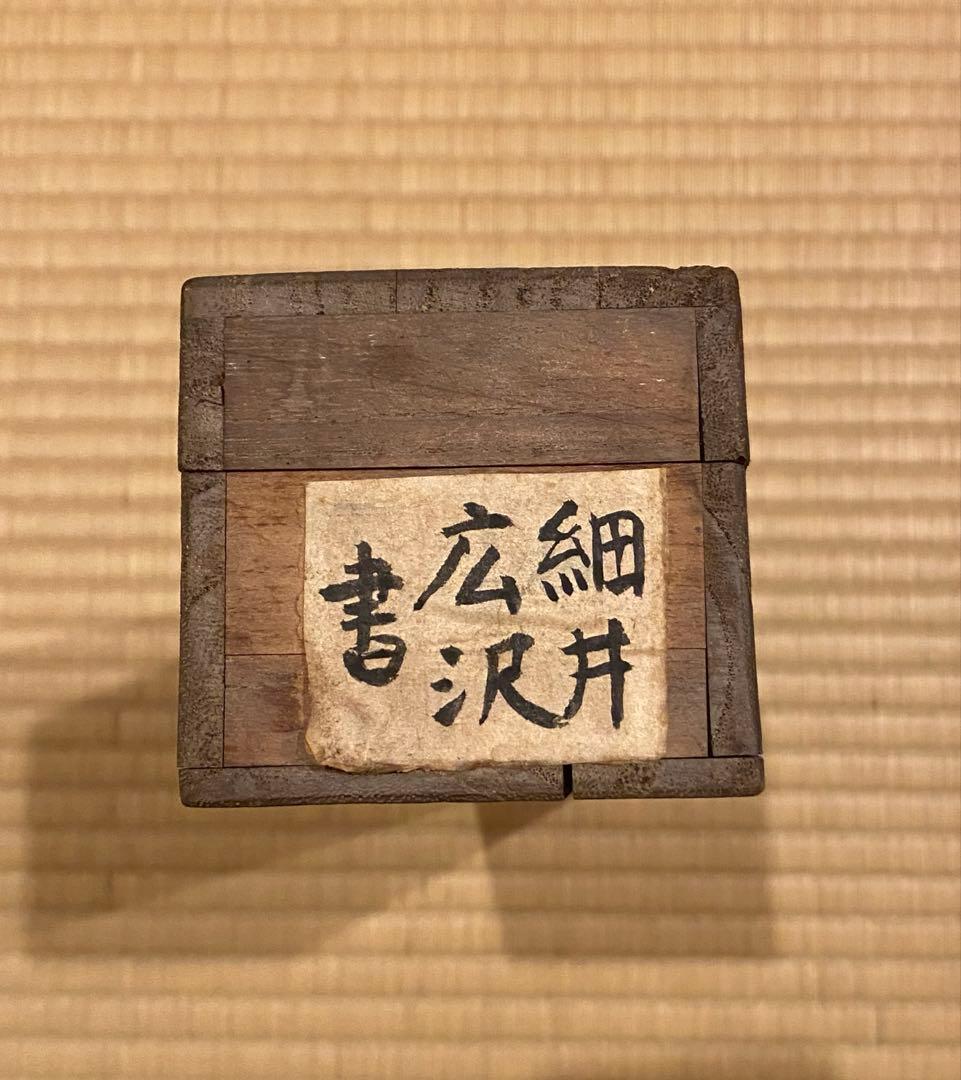 細井
広沢
書